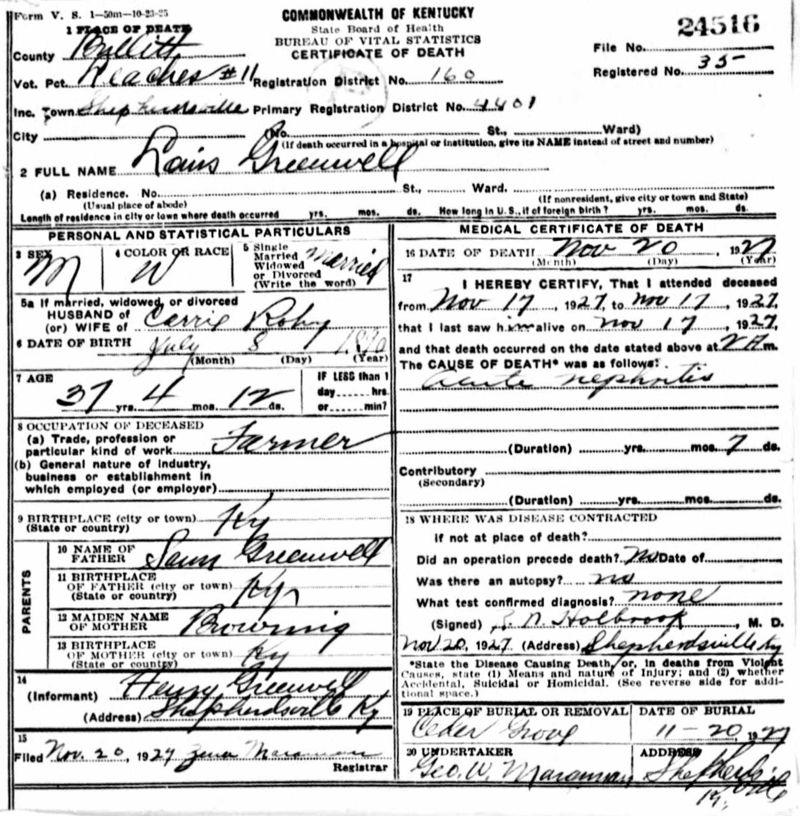 Form V. S. 1-50m-10-23-25
COMMONWEALTH OF KENTUCKY
State Board of Health
BUREAU OF VITAL STATISTICS
CERTIFICATE OF DEATH
24516
File No.
Registered No. 35
1 PLACE OF DEATH
County Bullitt
Vot. Pct. Leaches #11 Registration District No. 160
Inc. Town Shepherdsville Primary Registration District No. 4401
City (No. St., Ward)
(If death occurred in a hospital or institution, give its NAME instead of street and number)
2 FULL NAME Louis Greenwell
(a) Residence. No. St., Ward.
(Usual place of abode) (If nonresident, give city or town and State)
Length of residence in city or town where death occurred yrs. mos. ds. How long in U. S., if of foreign birth? yrs. mos. ds.
PERSONAL AND STATISTICAL PARTICULARS
3 SEX M
4 COLOR OR RACE W
5 Single
Married
Widowed
or Divorced
(Write the word)
Married
5a If married, widowed, or divorced
HUSBAND of
(or) WIFE of Carrie Roby
6 DATE OF BIRTH July 8
(Month) (Day) (Year)
7 AGE
37 yrs. 4 mos. 12 ds.
IF LESS than 1
day hrs.
or min?
8 OCCUPATION OF DECEASED
(a) Trade, profession or
particular kind of work Farmer
(b) General nature of industry,
business or establishment in
which employed (or employer)
9 BIRTHPLACE (city or town) Ky
(State or country)
PARENTS
10 NAME OF
FATHER Sam Greenwell
11 BIRTHPLACE
OF FATHER (city or town) Ky
(State or country)
12 MAIDEN NAME
OF MOTHER Browning
13 BIRTHPLACE
OF MOTHER (city or town) Ky
(State or country)
14
(Informant) Harry Greenwell
(Address) Shepherdsville Ky
15
Filed Nov. 20, 1927 Zena Maraman
Registrar
MEDICAL CERTIFICATE OF DEATH
16 DATE OF DEATH Nov 20, 1927
(Month) (Day) (Year)
17
I HEREBY CERTIFY, That I attended deceased
from Nov 17, 1927, to Nov 17, 1927,
that I last saw him alive on Nov 17, 1927,
and that death occurred on the date stated above at 2 A m.
The CAUSE OF DEATH* was as follows:
acute nephritis
(Duration) yrs. mos. 7 ds.
Contributory
(Secondary)
(Duration) yrs. mos. ds.
18 WHERE WAS DISEASE CONTRACTED
If not at place of death?
Did an operation precede death? no Date of
Was there an autopsy? no
What test confirmed diagnosis? none
(Signed) Holbrook, M. D.
Nov 20, 1927 (Address) Shepherdsville Ky
*State the Disease Causing Death, or, in deaths from Violent
Causes, state (1) Means and nature of Injury; and (2) whether
Accidental, Suicidal or Homicidal. (See reverse side for addi-
tional space.)
19 PLACE OF BURIAL OR REMOVAL
Ceder Grove
DATE OF BURIAL
11-20, 1927
20 UNDERTAKER
Geo. W. Maraman
ADDRESS
Shepherds-
ville
Ky.